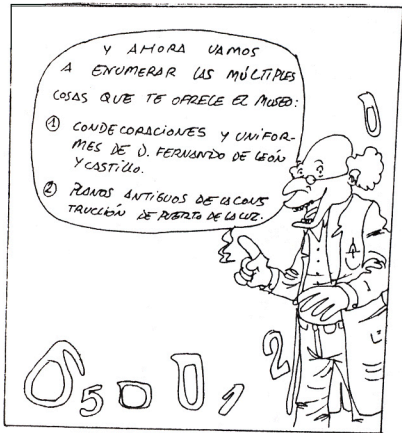 Y AHORA VAMOS
A ENUMERAR LAS MÚLTIPLES
COSAS QUE TE OFRECE EL MUSEO:
① CONDECORACIONES Y UNIFOR-
MES DE D. FERNANDO DE LEÓN
Y CASTILLO.
② PLANOS ANTIGUOS DE LA CONS
TRUCCIÓN DE PUERTO DE LA LUZ.
0
2
6 5 0 0 1